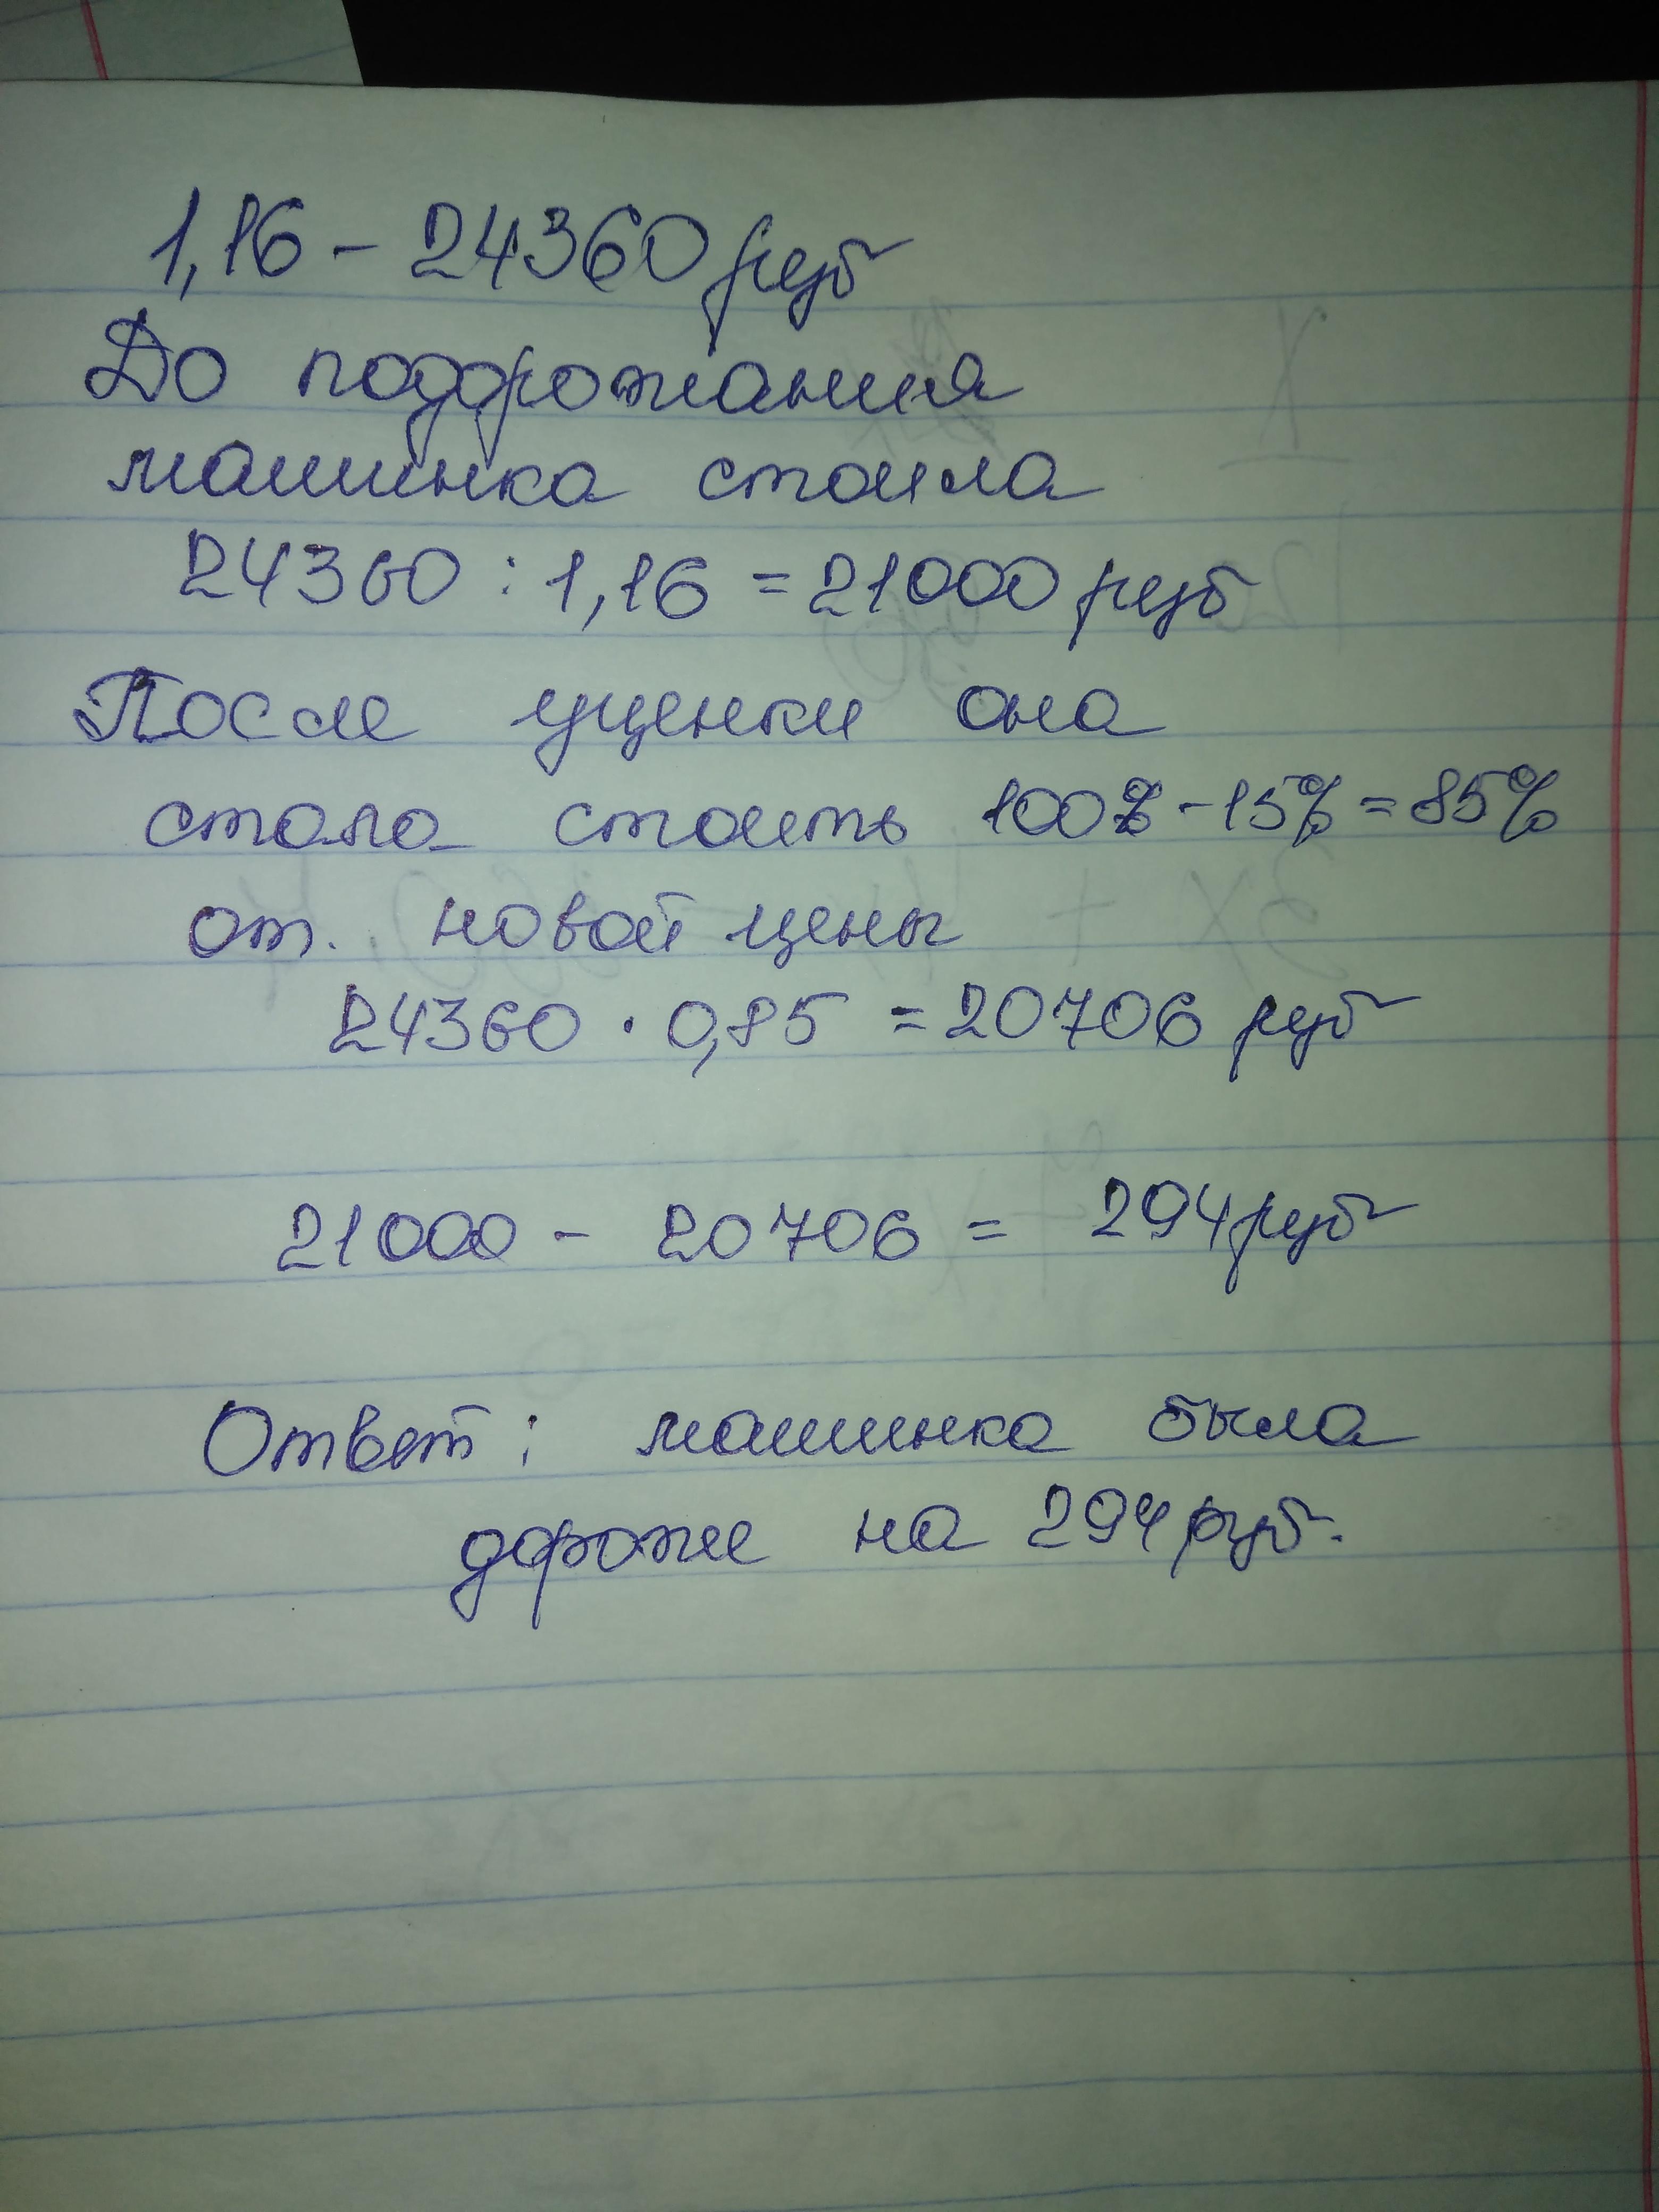 1,16 - 24360 руб
До подорожания
машинка стоила
24360 : 1,16 = 21000 руб
После уценки она
стала стоить 100% - 15% = 85%
от новой цены
24360 · 0,85 = 20706 руб
21000 - 20706 = 294 руб
Ответ: машинка была
дороже на 294 руб.